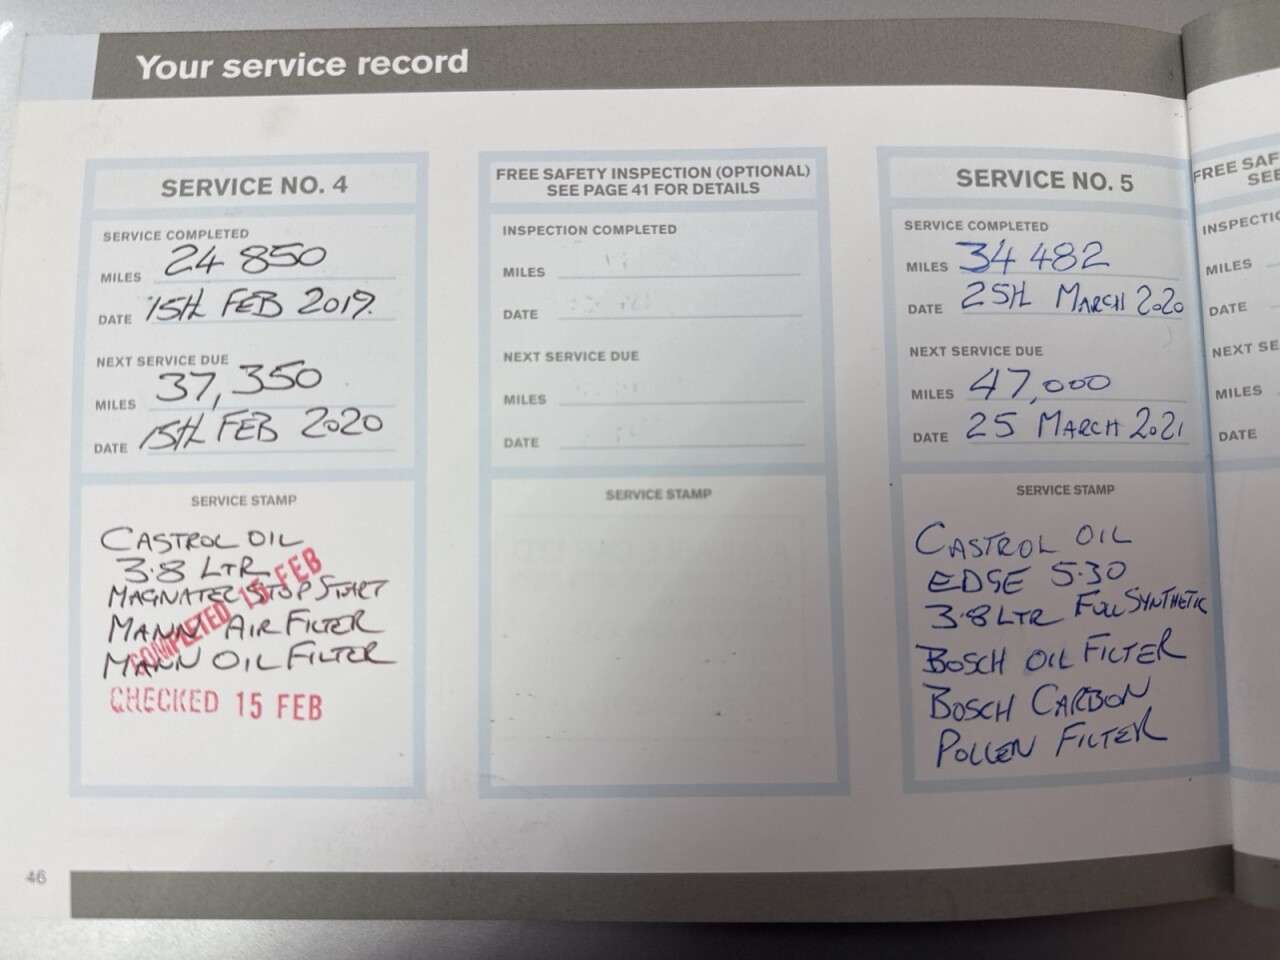 Your service record
SERVICE NO. 4
SERVICE COMPLETED
MILES 24 850
DATE 15TH FEB 2019.
NEXT SERVICE DUE
MILES 37,350
DATE 15TH FEB 2020
SERVICE STAMP
CASTROL OIL
3.8 LTR
MAGNATEC STOP START
MANN AIR FILTER
MANN OIL FILTER
COMPLETED 15 FEB
CHECKED 15 FEB
FREE SAFETY INSPECTION (OPTIONAL)
SEE PAGE 41 FOR DETAILS
INSPECTION COMPLETED
MILES
DATE
NEXT SERVICE DUE
MILES
DATE
SERVICE STAMP
SERVICE NO. 5
SERVICE COMPLETED
MILES 34 482
DATE 25TH MARCH 2020
NEXT SERVICE DUE
MILES 47,000
DATE 25 MARCH 2021
SERVICE STAMP
CASTROL OIL
EDGE 5.30
3.8 LTR FULL SYNTHETIC
BOSCH OIL FILTER
BOSCH CARBON
POLLEN FILTER
FREE
SEE
MILES
DATE
NEXT
MILES
DATE
46